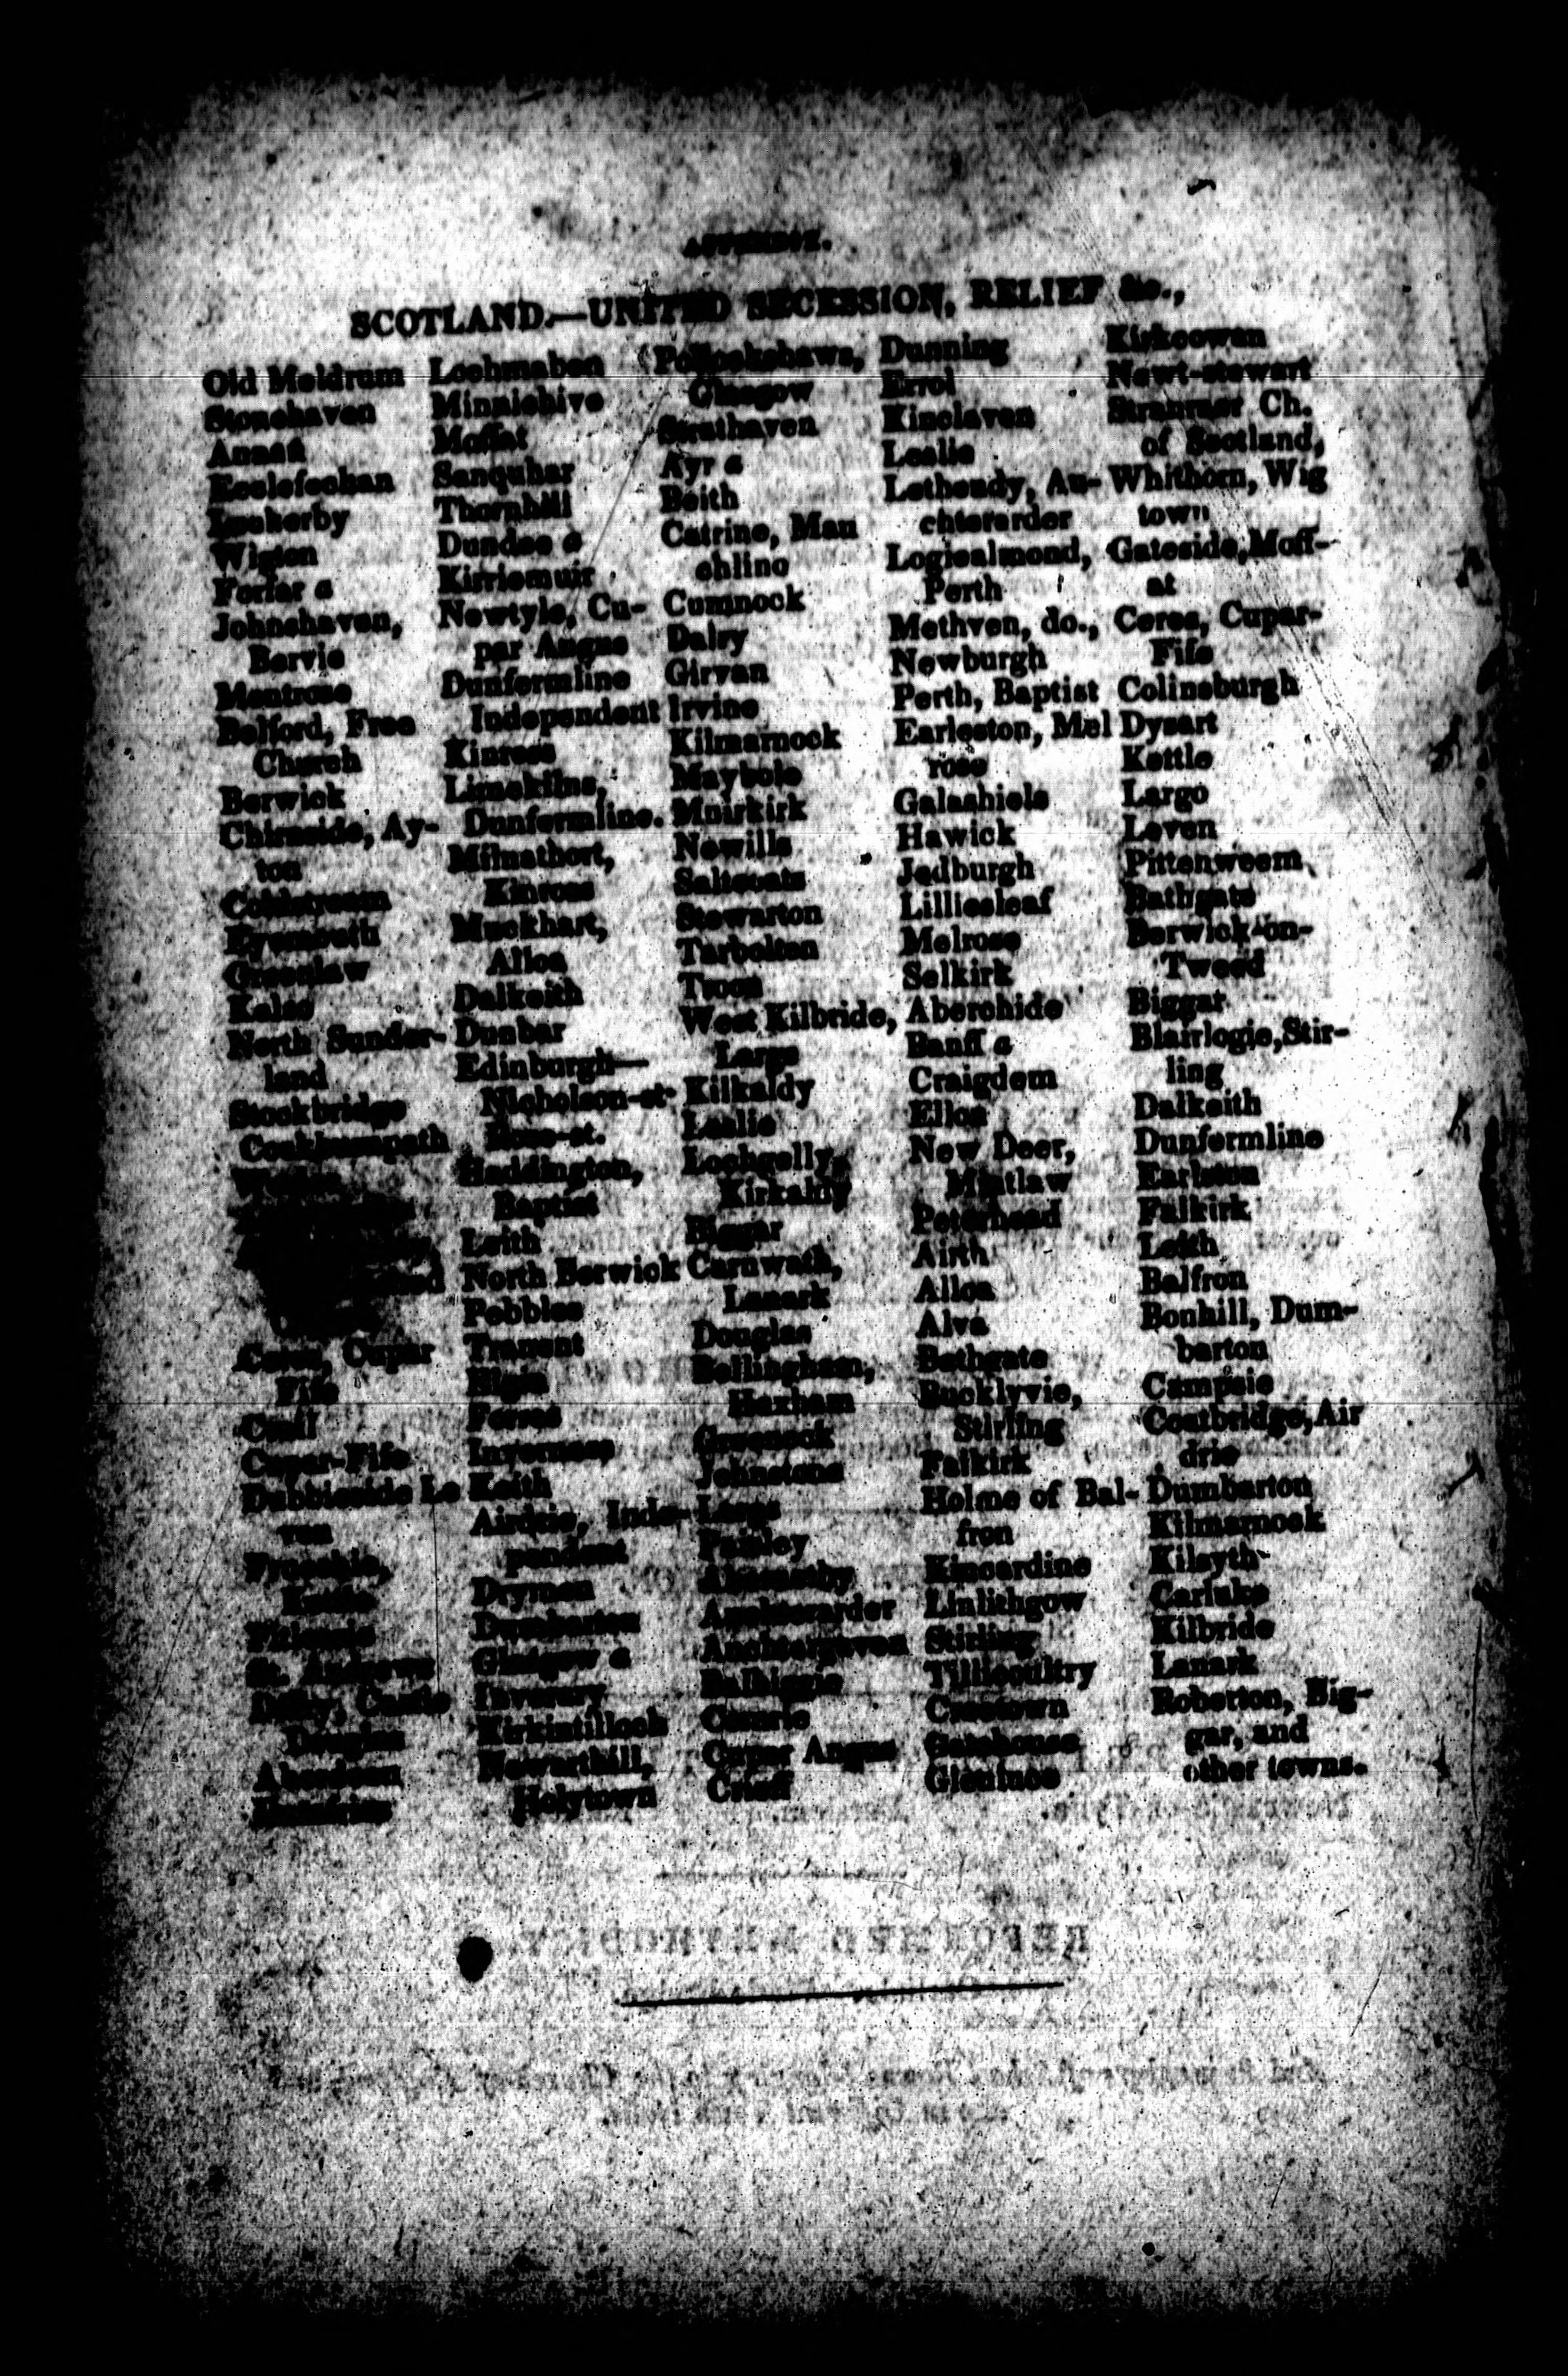 APPENDIX.
SCOTLAND.—UNITED SECESSION, RELIEF &c.,
Old Meldrum
Stonehaven
Annan
Ecclefechan
Lockerby
Wigton
Forfar a
Johnshaven,
Bervie
Montrose
Belford, Free
Church
Berwick
Chirnside, Ay-
ton
Coldstream
Eyemouth
Greenlaw
Kelso
North Sunder-
land
Stockbridge
Cockburnspath
Ceres, Cupar
Fife
Crail
Cupar-Fife
Dubbieside Le
ven
Freuchie,
Kettle
Pitlessie
St. Andrews
Dalry, Castle
Douglas
Aberdeen
Dumfries
Lochmaben
Minniehive
Moffat
Sanquhar
Thornhill
Dundee a
Kirriemuir
Newtyle, Cu-
par Angus
Dunfermline
Independent
Kinross
Limekilns,
Dunfermline.
Milnathort,
Kinross
Muckhart,
Alloa
Dalkeith
Dunbar
Edinburgh—
Nicholson-st-
Rose-st.
Haddington,
Baptist
Leith
North Berwick
Pebbles
Tranent
Elgin
Forres
Inverness
Keith
Airdrie, Inde-
pendent
Drymen
Dumbarton
Glasgow a
Inverury
Kirkintilloch
Newarthill,
Holytown
Pollockshaws,
Glasgow
Strathaven
Ayr a
Beith
Catrine, Mau
chline
Cumnock
Dalry
Girvan
Irvine
Kilmarnock
Maybole
Muirkirk
Newills
Saltcoats
Stewarton
Tarbolton
Troon
West Kilbride,
Largs
Kilkaldy
Leslie
Lochgelly,
Kirkaldy
Biggar
Carnwath,
Lanark
Douglas
Bellingham,
Hexham
Greenock
Johnstone
Largs
Paisley
Abernethy
Auchterarder
Auchtergaven
Balbiggie
Comrie
Cupar Angus
Crieff
Dunning
Errol
Kinclaven
Leslie
Lethendy, Au-
chterarder
Logiealmond,
Perth
Methven, do.,
Newburgh
Perth, Baptist
Earleston, Mel
rose
Galashiels
Hawick
Jedburgh
Lilliesleaf
Melrose
Selkirk
Aberchide
Banff a
Craigdem
Ellon
New Deer,
Mintlaw
Peterhead
Airth
Alloa
Alva
Bathgate
Bucklyvie,
Stirling
Falkirk
Holme of Bal-
fron
Kincardine
Linlithgow
Stirling
Tillicoultry
Creetown
Gatehouse
Glenluce
Kirkcowan
Newt-stewart
Stranraer Ch.
of Scotland,
Whithorn, Wig
town
Gateside, Moff-
at
Ceres, Cupar-
Fife
Colinsburgh
Dysart
Kettle
Largo
Leven
Pittenweem
Bathgate
Berwick-on-
Tweed
Biggar
Blairlogie, Stir-
ling
Dalkeith
Dunfermline
Earlston
Falkirk
Leith
Balfron
Bonhill, Dum-
barton
Campsie
Coatbridge, Air
drie
Dumbarton
Kilmarnock
Kilsyth
Carluke
Kilbride
Lanark
Roberton, Big-
gar, and
other towns.